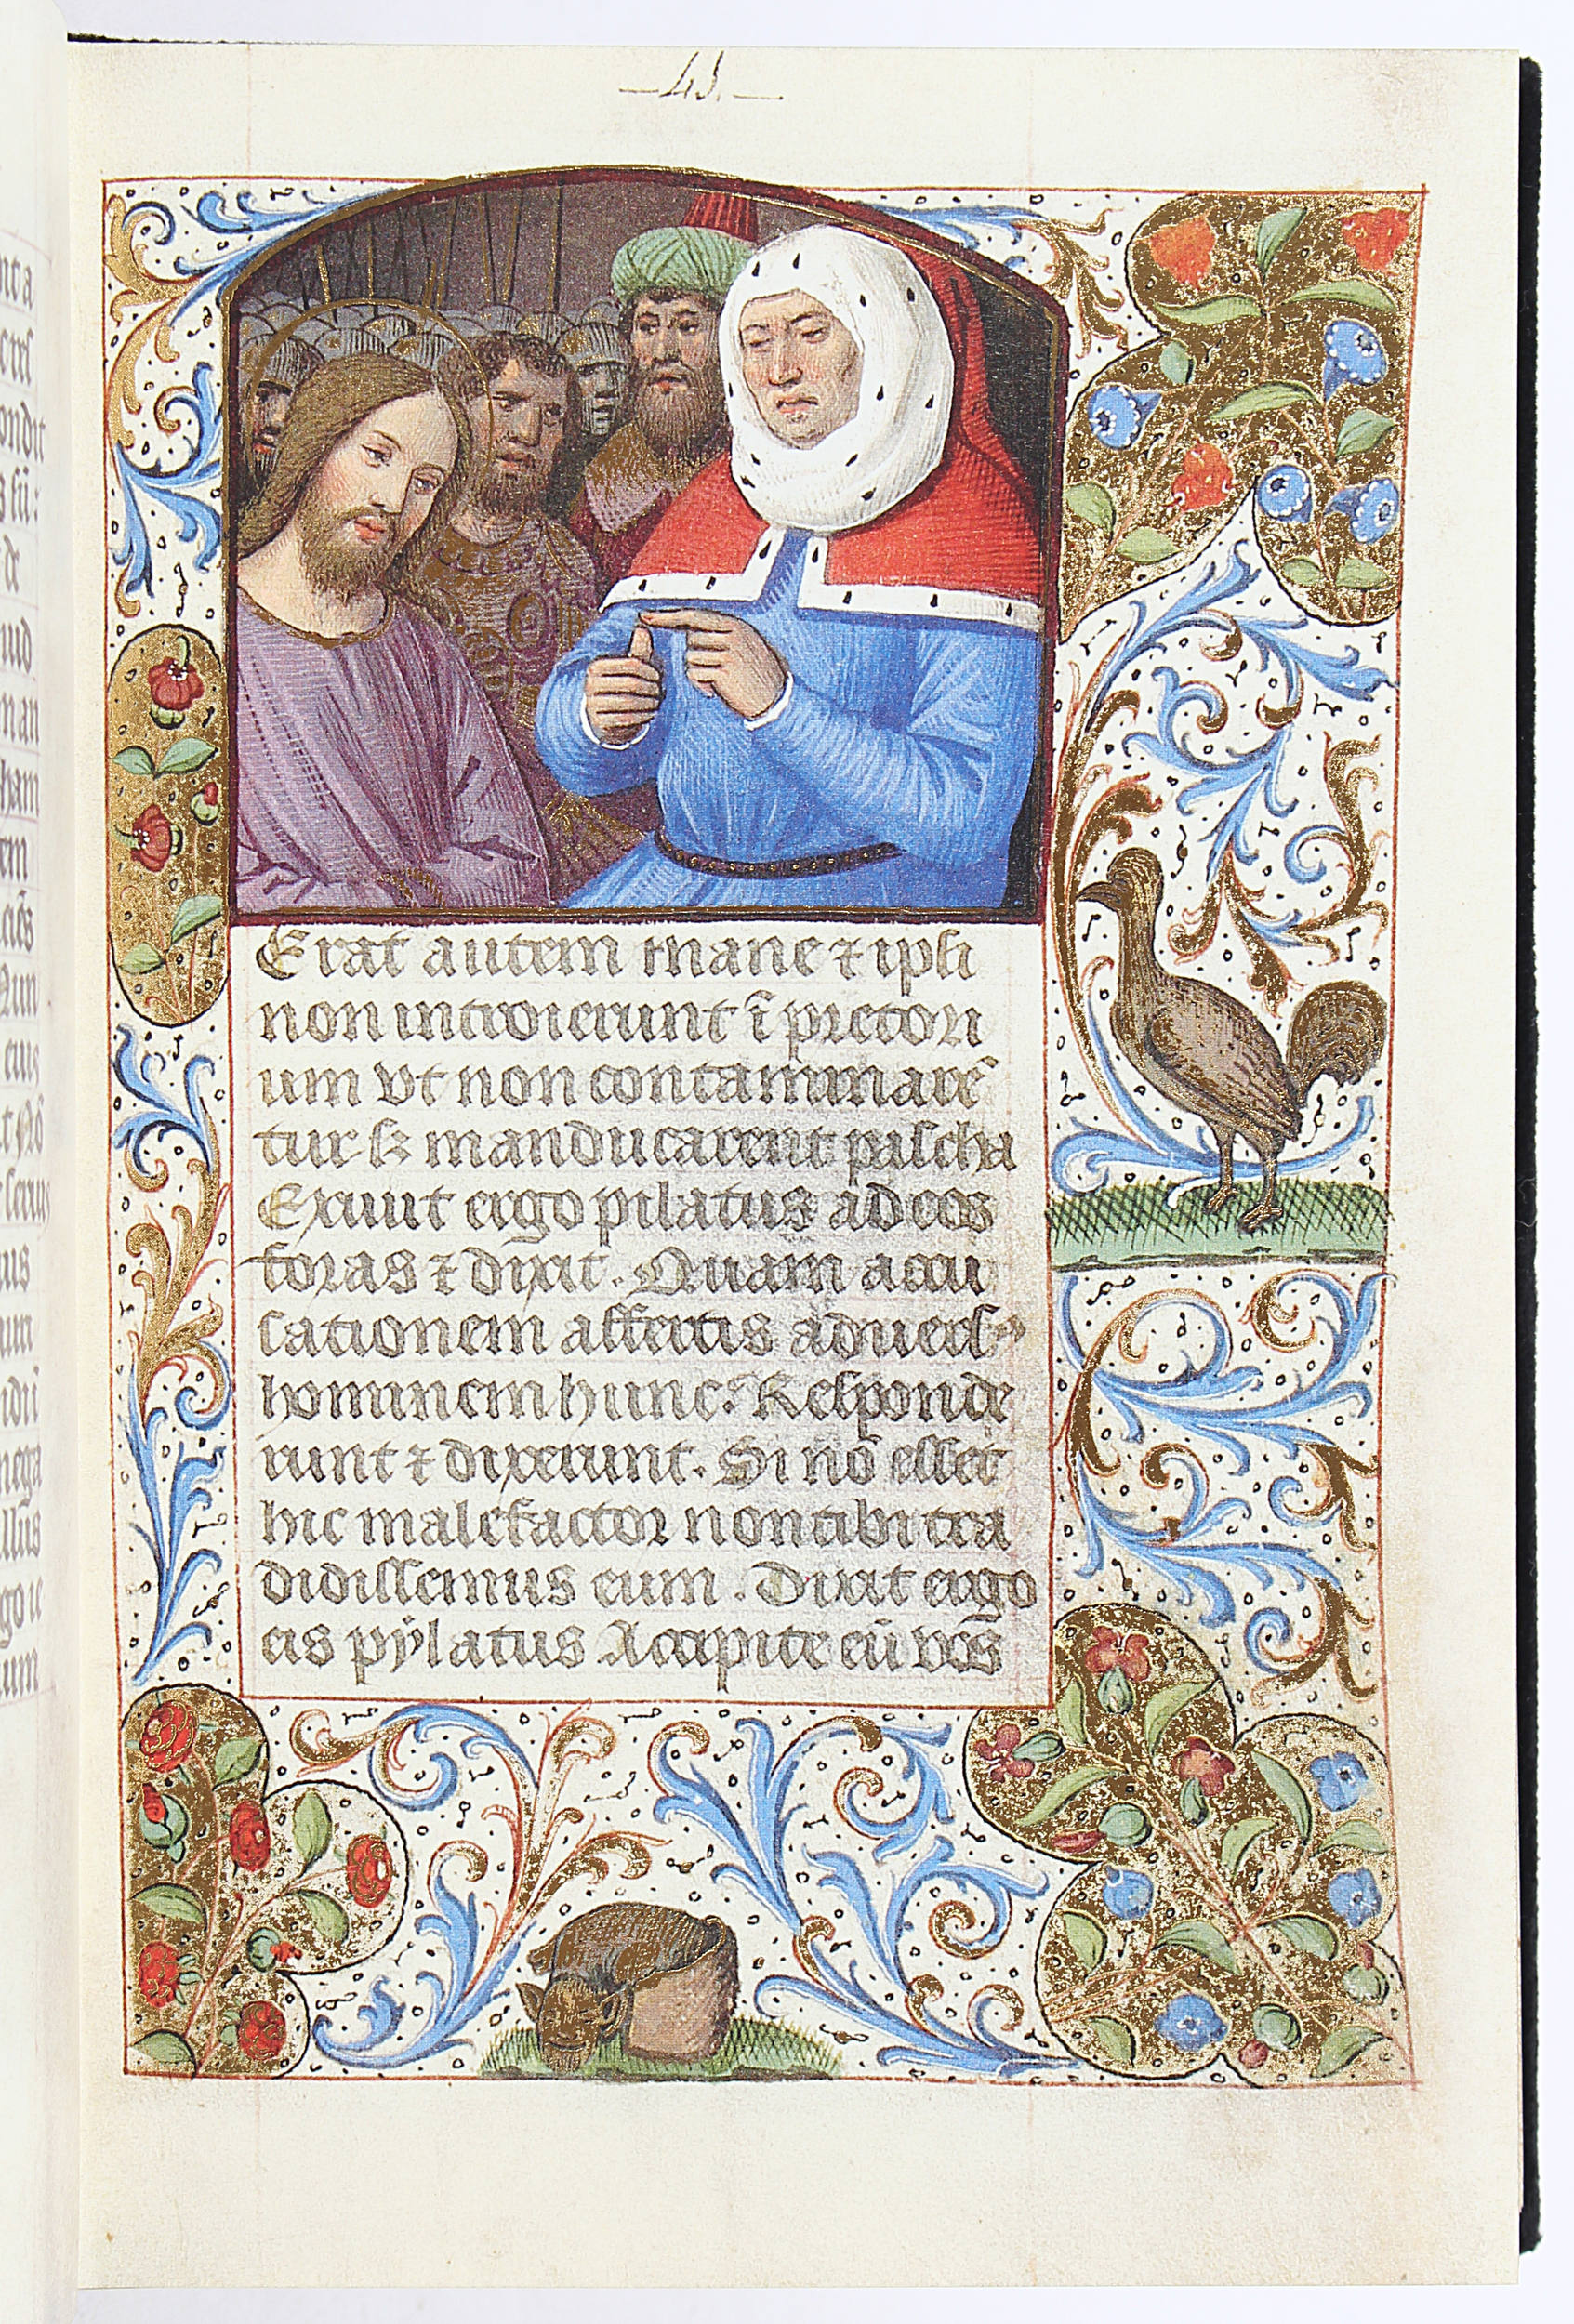 —43.—
Erat autem mane ⁊ ipsi
non introierunt ī pretori
um vt non contaminarē
tur sꝫ manducarent pascha
Exiuit ergo pilatus ad eos
foras ⁊ dixit. Quam accu
sationem affertis aduers⁹
hominem hunc? Responde
runt ⁊ dixerunt. Si nō esset
hic malefactor non tibi tra
didissemus eum. Dixit ergo
eis pÿlatus Accipite eū vos